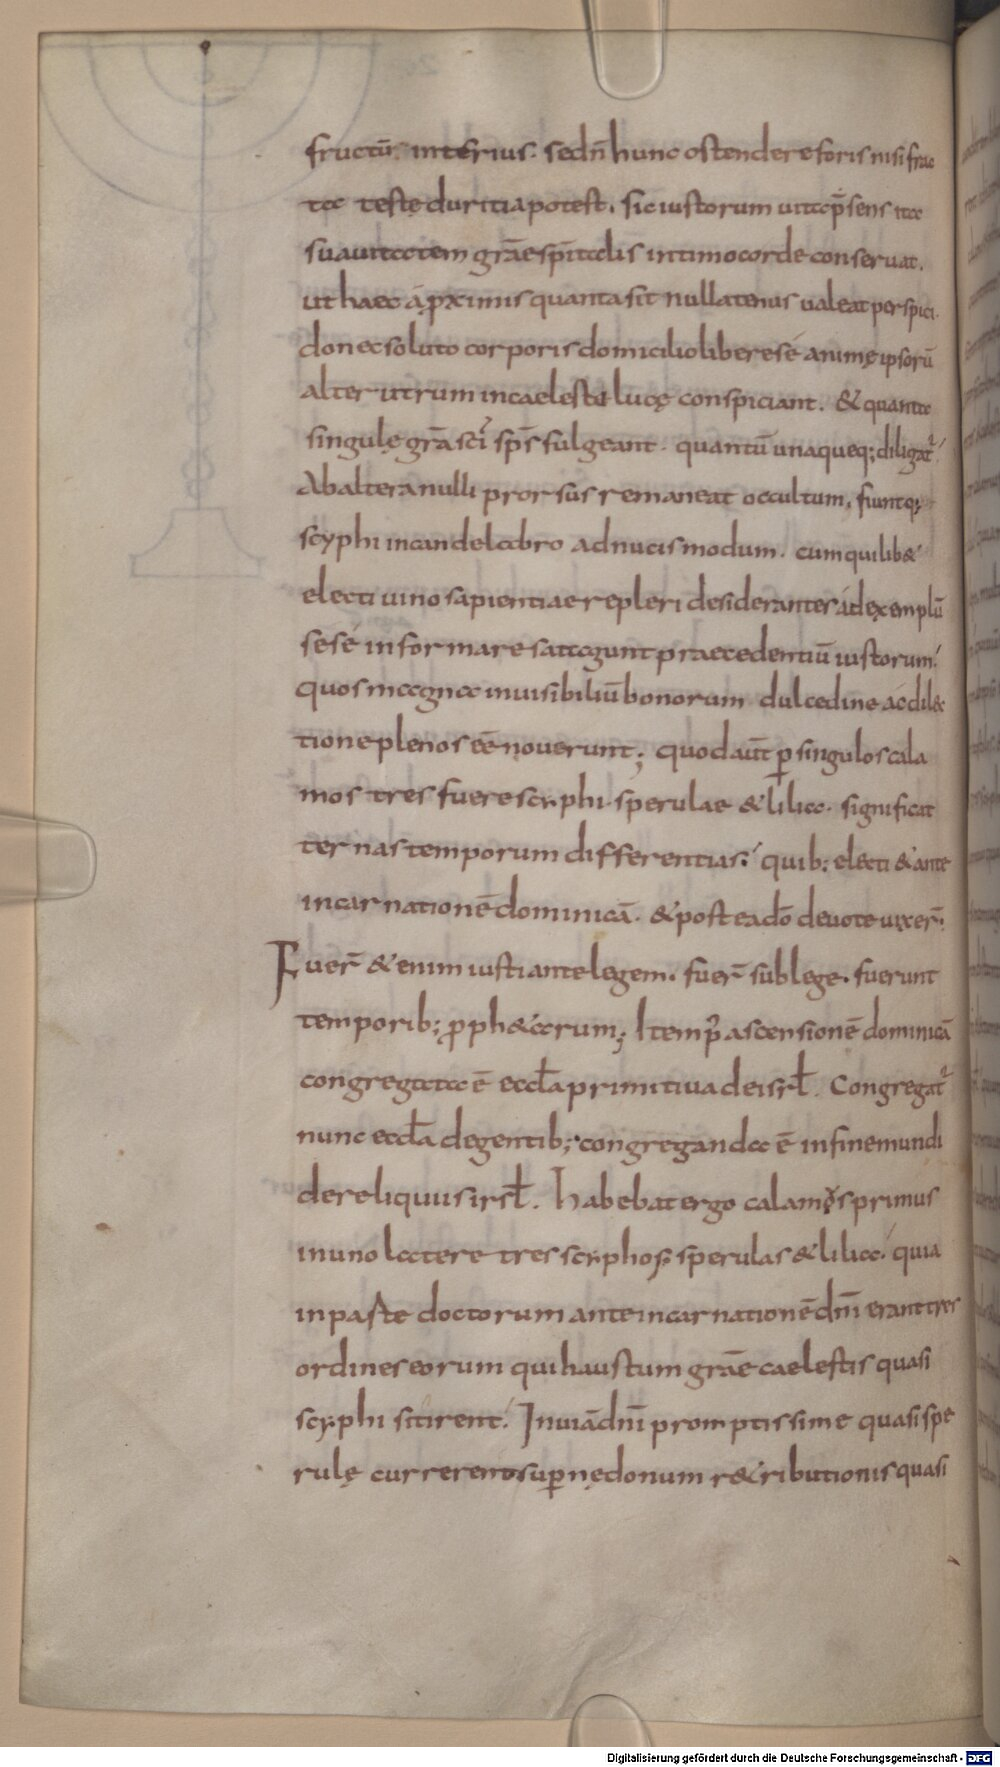 fructū. interius. sed n̄ hunc ostendere foris nisi frac
ta testę duritia potest. sic iustorum uita p̄sens ita
suauitatem grāe spiītalis intimo corde conseruat.
ut haec á ꝓximis quanta sit nullatenus ualeat perspici.
donec soluto corporis domicilio libere sé animę ipsorū
alterutrum in caeleste lucę conspiciant. & quanta
singulę grā sci sp̄s fulgeant. quantū unaqueq; diligat᷑
Ab altera nulli prorsus remaneat occultum. fiuntq;
scyphi in candelabro ad nucis modum. cum quilib&
electi uino sapientiae repleri desiderantes ád exemplū
sesé informare satagunt praecedentiū iustorum.
quos magna inuisibiliū bonorum dulcedine ác dilec
tione plenos eē nouerunt; quod aūt ꝑ singulos cala
mos tres fuere scyphi. sperulae & lilia. significat
ternas temporum differentias. quib; electi & ante
incarnationē dominicā. & post ea dō deuote uixer̄.
Fuer̄ &enim iusti ante legem. fuer̄ sub lege. fuerunt
temporib; ꝓph&arum; Item p᷑ ascensionē dominicā
congregata ē eccl̄a primitiua de isrl̄. Congregat᷑
nunc eccl̄a de gentib; congreganda ē in fine mundi
de reliquiis isrl̄. Habebat ergo calamos primus
in uno latere tres scyphos. sperulas & lilia. quia
in paste doctorum ante incarnationē dn̄i erant tres
ordines eorum qui haustum grāe caelestis quasi
scyphi sitirent. In uiā dn̄i promptissime quasi spe
rulę currerent supernę donum r&ributionis quasi
Digitalisierung gefördert durch die Deutsche Forschungsgemeinschaft - DFG